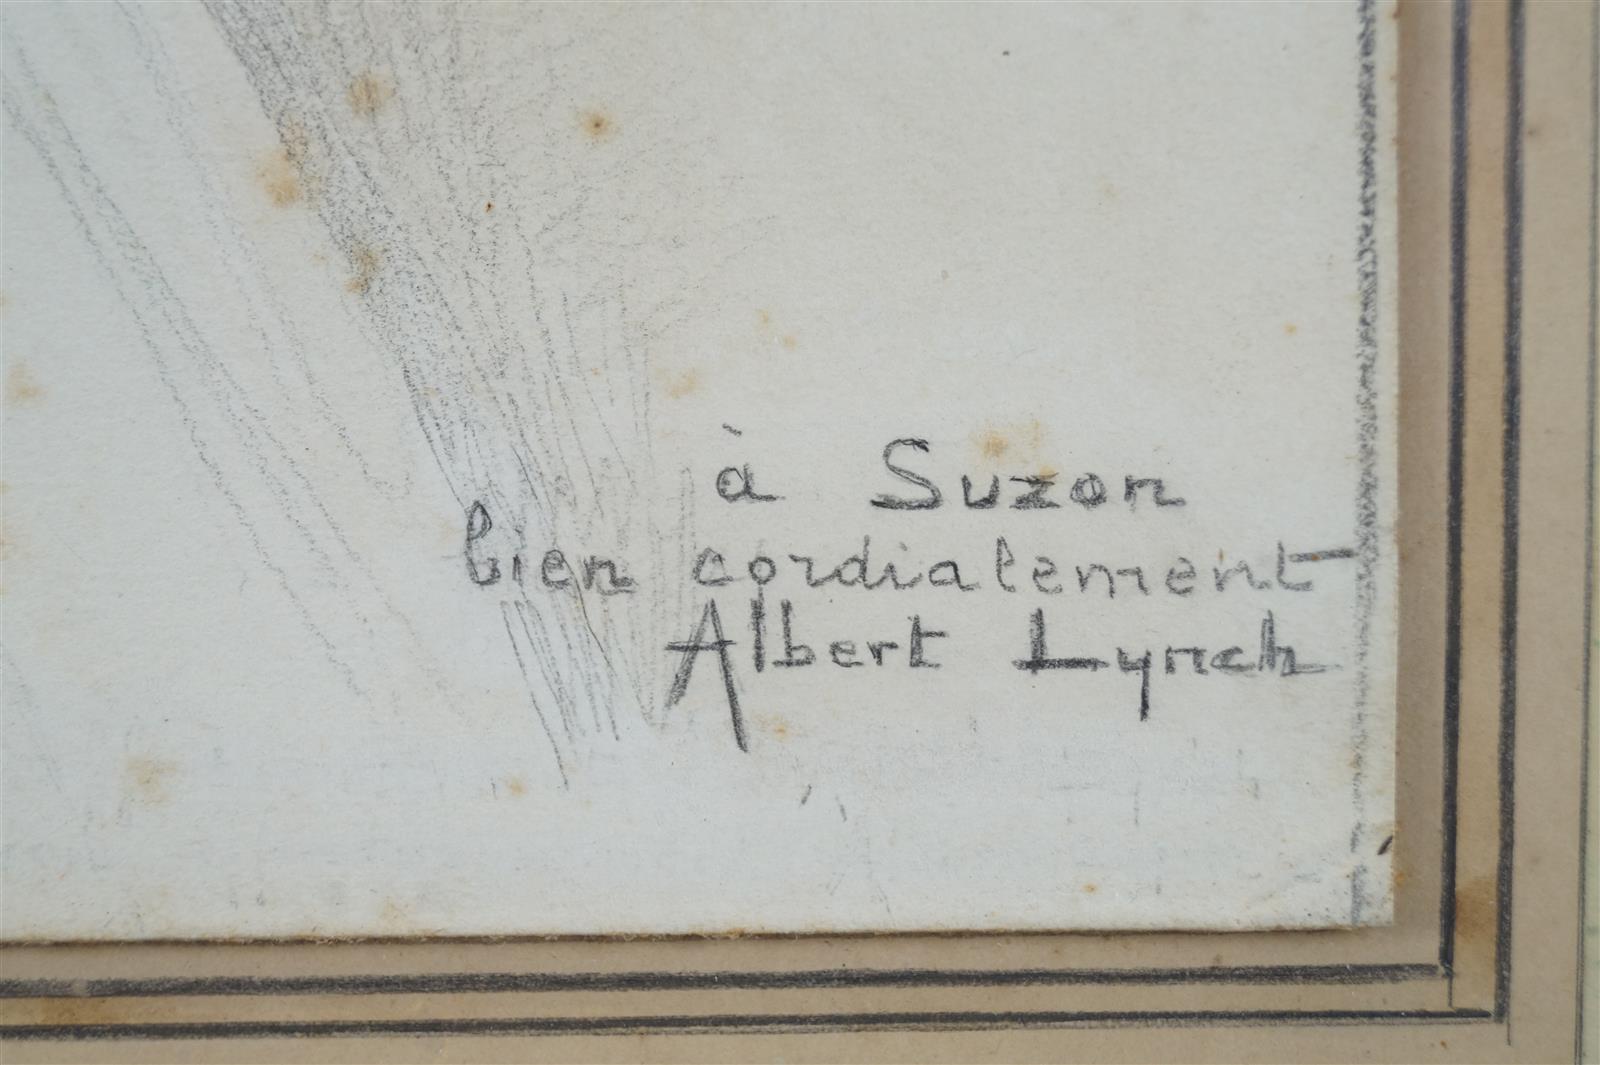 à Suzon
bien cordialement
Albert Lynch